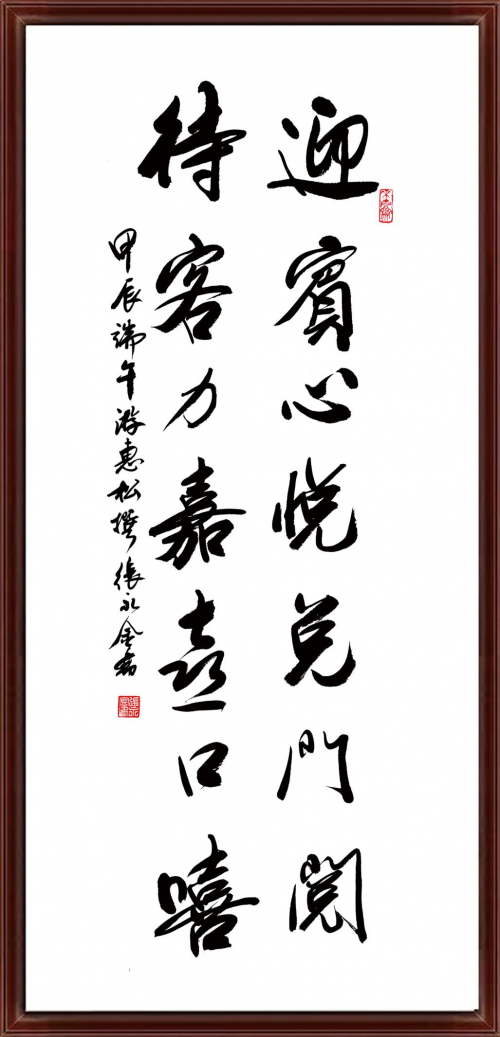 迎賓心悦兑門閲
待客力嘉喜口嘻
甲辰端午游惠松撰張永金書